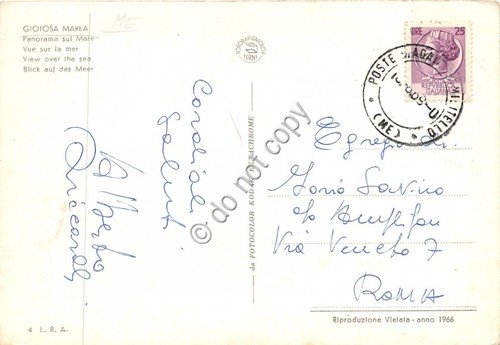 GIOIOSA MAREA
Panorama sul Mare
Vue sur la mer
View over the sea
Blick auf das Meer
ME
TERNI
LIRE 25
POSTE
MILITELLO
(ME)
Cordiali
saluti
Alberto
© do not copy
da FOTOCOLOR KODAK EKTACHROME
Egregio
Savino
c/o
Via Veneto 7
ROMA
4 E.R.A.
Riproduzione Vietata - anno 1966